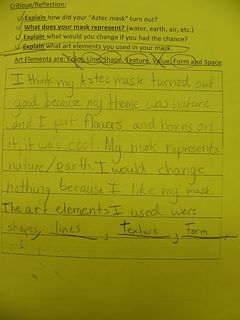 Critique/Reflection:
Explain how did your "Aztec mask" turn out?
What does your mask represent? (water, earth, air, etc.)
Explain what would you change if you had the chance?
Explain what art elements you used in your mask.
Art Elements are: Color, Line, Shape, Texture, Value, Form and Space
I think my Aztec mask turned out
good because my theme was nature
and I put flowers and horns on
it, it was cool. My mak represents
nature/earth. I would change
nothing because I like my mask.
The art elements I used were
shapes, lines, texture, Form